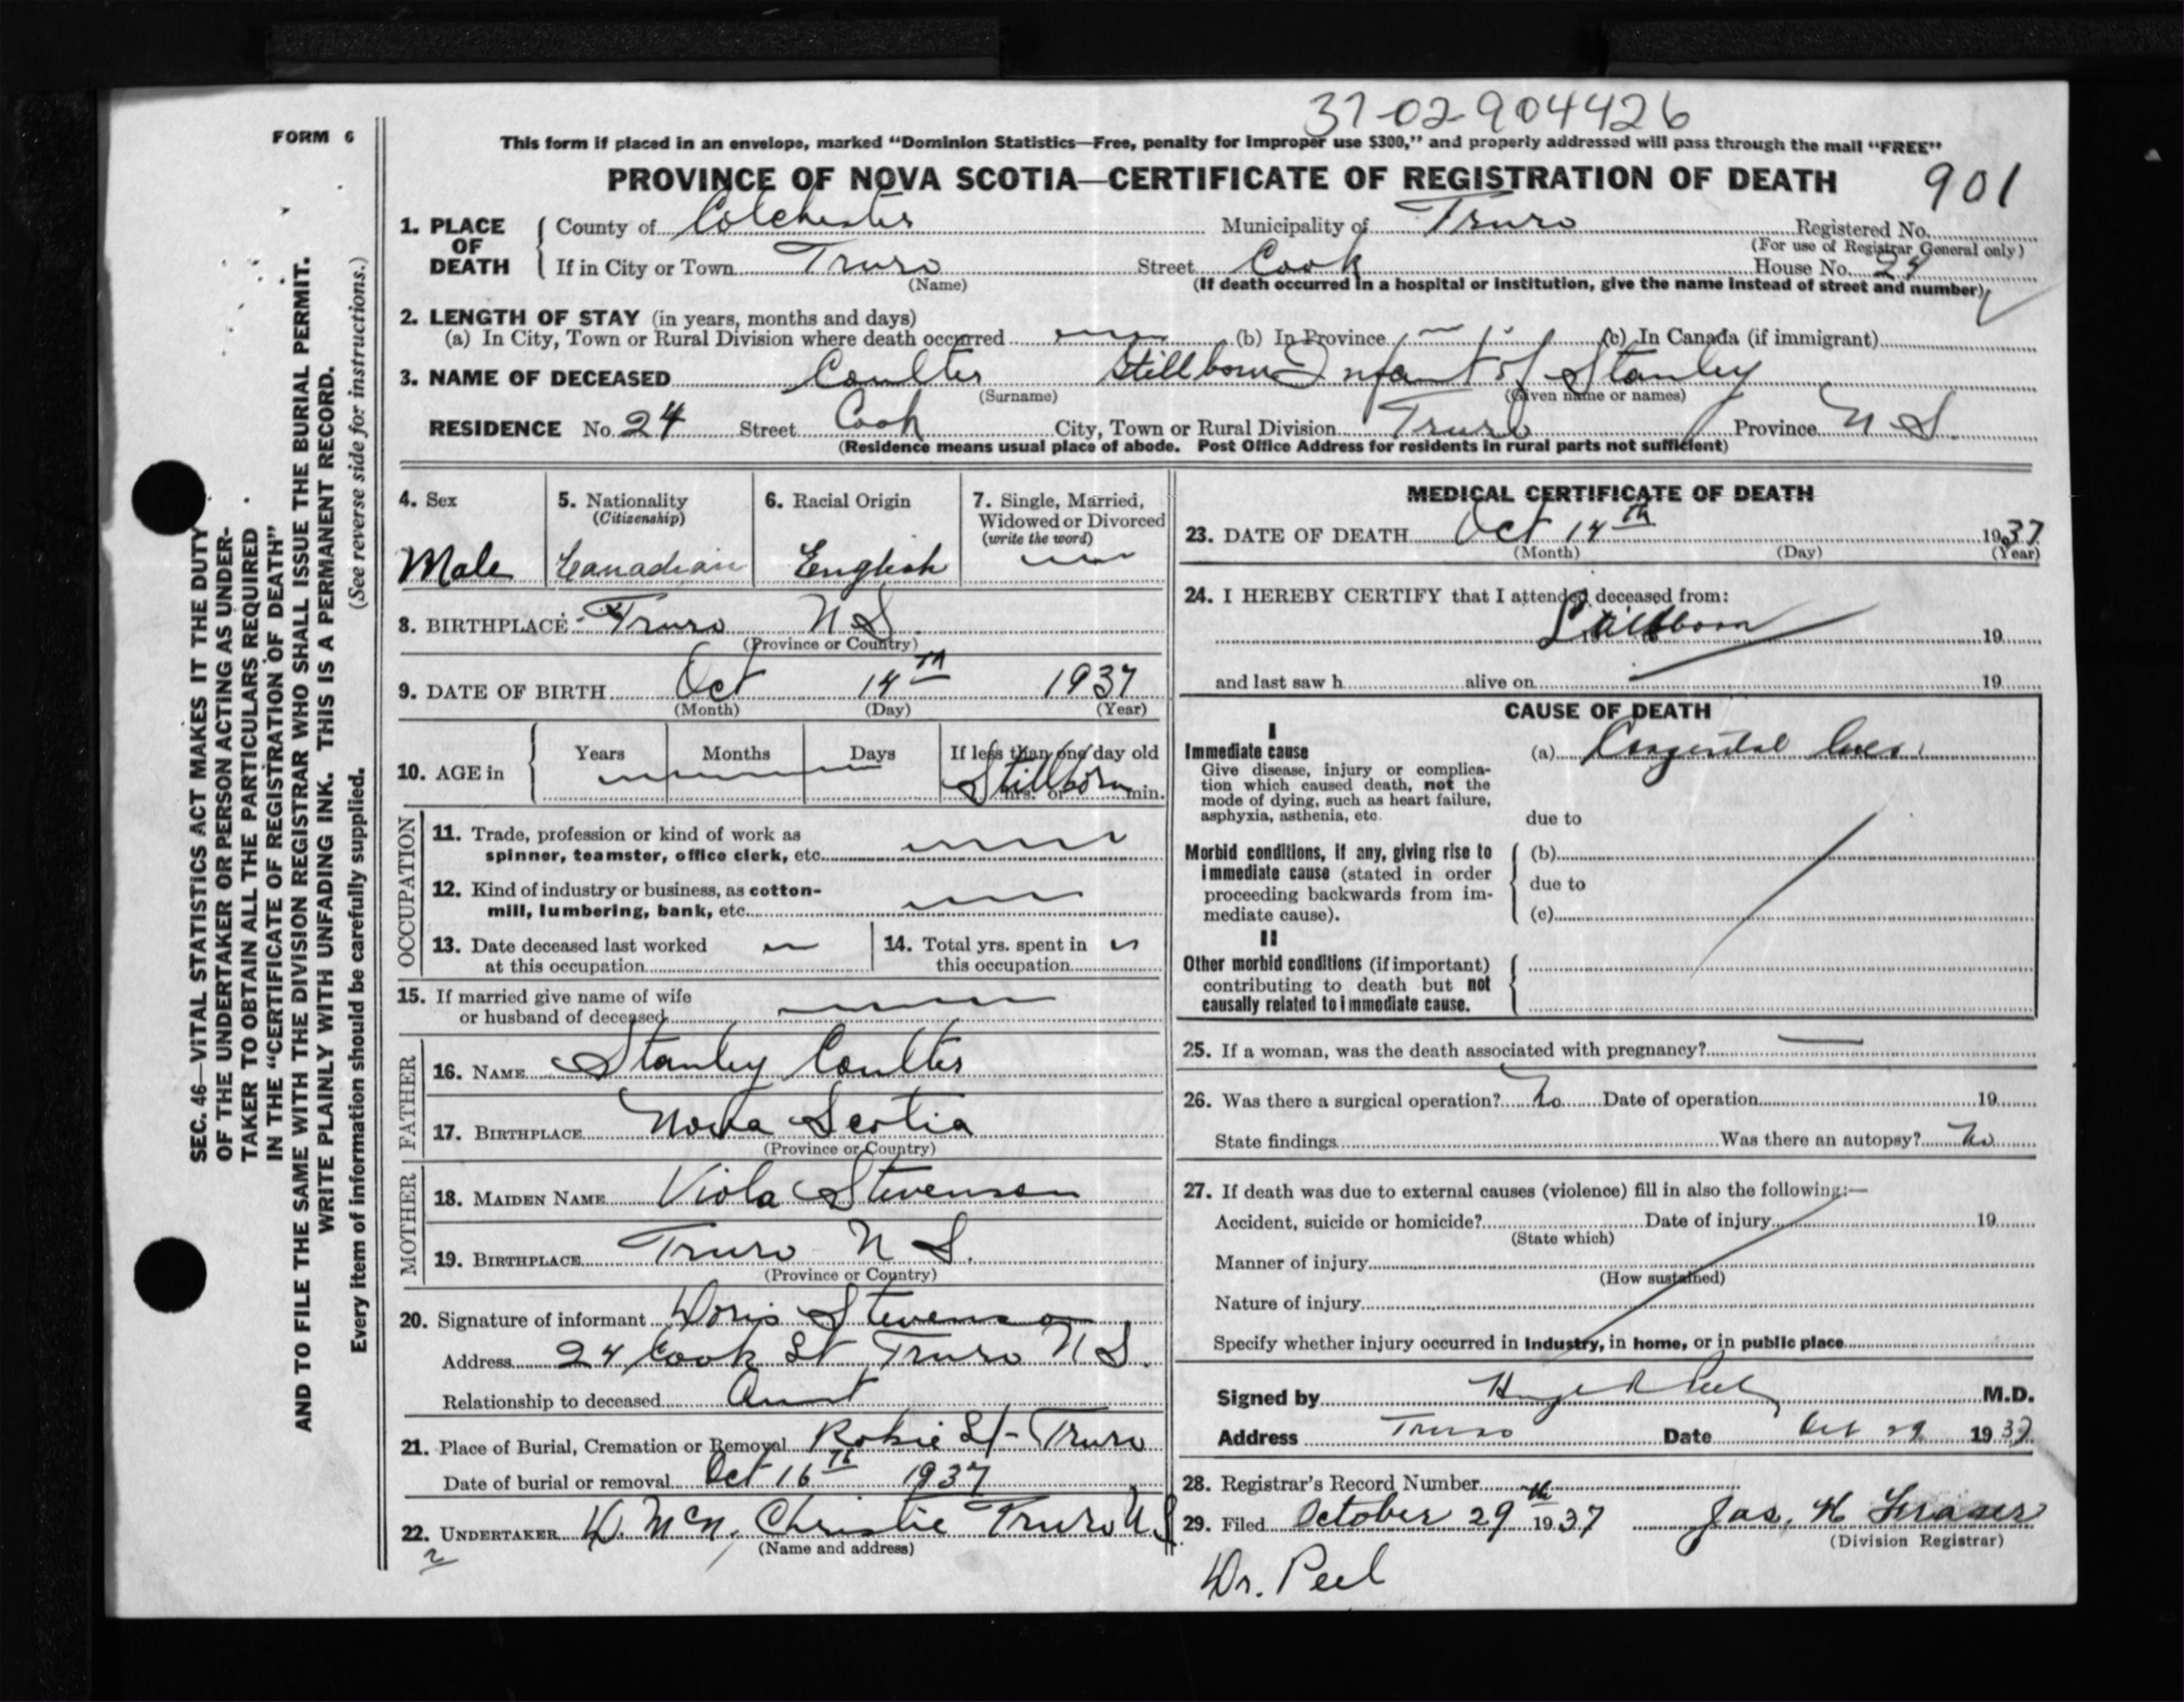 37-02-904426
FORM 6
This form if placed in an envelope, marked "Dominion Statistics—Free, penalty for improper use $300," and properly addressed will pass through the mail "FREE"
PROVINCE OF NOVA SCOTIA—CERTIFICATE OF REGISTRATION OF DEATH 901
1. PLACE OF DEATH County of Colchester Municipality of Truro Registered No.
(For use of Registrar General only)
If in City or Town Truro Street Cook House No. 24
(Name) (If death occurred in a hospital or institution, give the name instead of street and number)
2. LENGTH OF STAY (in years, months and days)
(a) In City, Town or Rural Division where death occurred (b) In Province (c) In Canada (if immigrant)
3. NAME OF DECEASED Coulter Stillborn Infant of Stanley
(Surname) (Given name or names)
RESIDENCE No. 24 Street Cook City, Town or Rural Division Truro Province N S.
(Residence means usual place of abode. Post Office Address for residents in rural parts not sufficient)
4. Sex Male
5. Nationality (Citizenship) Canadian
6. Racial Origin English
7. Single, Married, Widowed or Divorced (write the word)
8. BIRTHPLACE Truro N S.
(Province or Country)
9. DATE OF BIRTH Oct 14th 1937
(Month) (Day) (Year)
10. AGE in Years Months Days If less than one day old
Stillborn hrs. or min.
OCCUPATION
11. Trade, profession or kind of work as
spinner, teamster, office clerk, etc.
12. Kind of industry or business, as cotton-
mill, lumbering, bank, etc.
13. Date deceased last worked
at this occupation
14. Total yrs. spent in
this occupation
15. If married give name of wife
or husband of deceased
FATHER
16. NAME Stanley Coulter
17. BIRTHPLACE Nova Scotia
(Province or Country)
MOTHER
18. MAIDEN NAME Viola Stevenson
19. BIRTHPLACE Truro N S.
(Province or Country)
20. Signature of informant Doris Stevenson
Address 24 Cook St Truro N S.
Relationship to deceased Aunt
21. Place of Burial, Cremation or Removal Robie St- Truro
Date of burial or removal Oct 16th 1937
22. UNDERTAKER D. McN. Christie Truro N S
(Name and address)
MEDICAL CERTIFICATE OF DEATH
23. DATE OF DEATH Oct 14th 1937
(Month) (Day) (Year)
24. I HEREBY CERTIFY that I attended deceased from:
Stillborn 19
and last saw h alive on 19
CAUSE OF DEATH
I
Immediate cause (a) Congenital lues.
Give disease, injury or complica-
tion which caused death, not the
mode of dying, such as heart failure,
asphyxia, asthenia, etc.
due to
Morbid conditions, if any, giving rise to (b)
immediate cause (stated in order
proceeding backwards from im- due to
mediate cause). (c)
II
Other morbid conditions (if important)
contributing to death but not
causally related to immediate cause.
25. If a woman, was the death associated with pregnancy?
26. Was there a surgical operation? No Date of operation 19
State findings Was there an autopsy? No
27. If death was due to external causes (violence) fill in also the following:—
Accident, suicide or homicide? Date of injury 19
(State which)
Manner of injury
(How sustained)
Nature of injury
Specify whether injury occurred in industry, in home, or in public place
Signed by Peel M.D.
Address Truro Date Oct 29 1937
28. Registrar's Record Number
29. Filed October 29th 1937 Jas. H Fraser
(Division Registrar)
Dr. Peel
SEC. 46—VITAL STATISTICS ACT MAKES IT THE DUTY
OF THE UNDERTAKER OR PERSON ACTING AS UNDER-
TAKER TO OBTAIN ALL THE PARTICULARS REQUIRED
IN THE "CERTIFICATE OF REGISTRATION OF DEATH"
AND TO FILE THE SAME WITH THE DIVISION REGISTRAR WHO SHALL ISSUE THE BURIAL PERMIT.
WRITE PLAINLY WITH UNFADING INK. THIS IS A PERMANENT RECORD.
Every item of information should be carefully supplied. (See reverse side for instructions.)